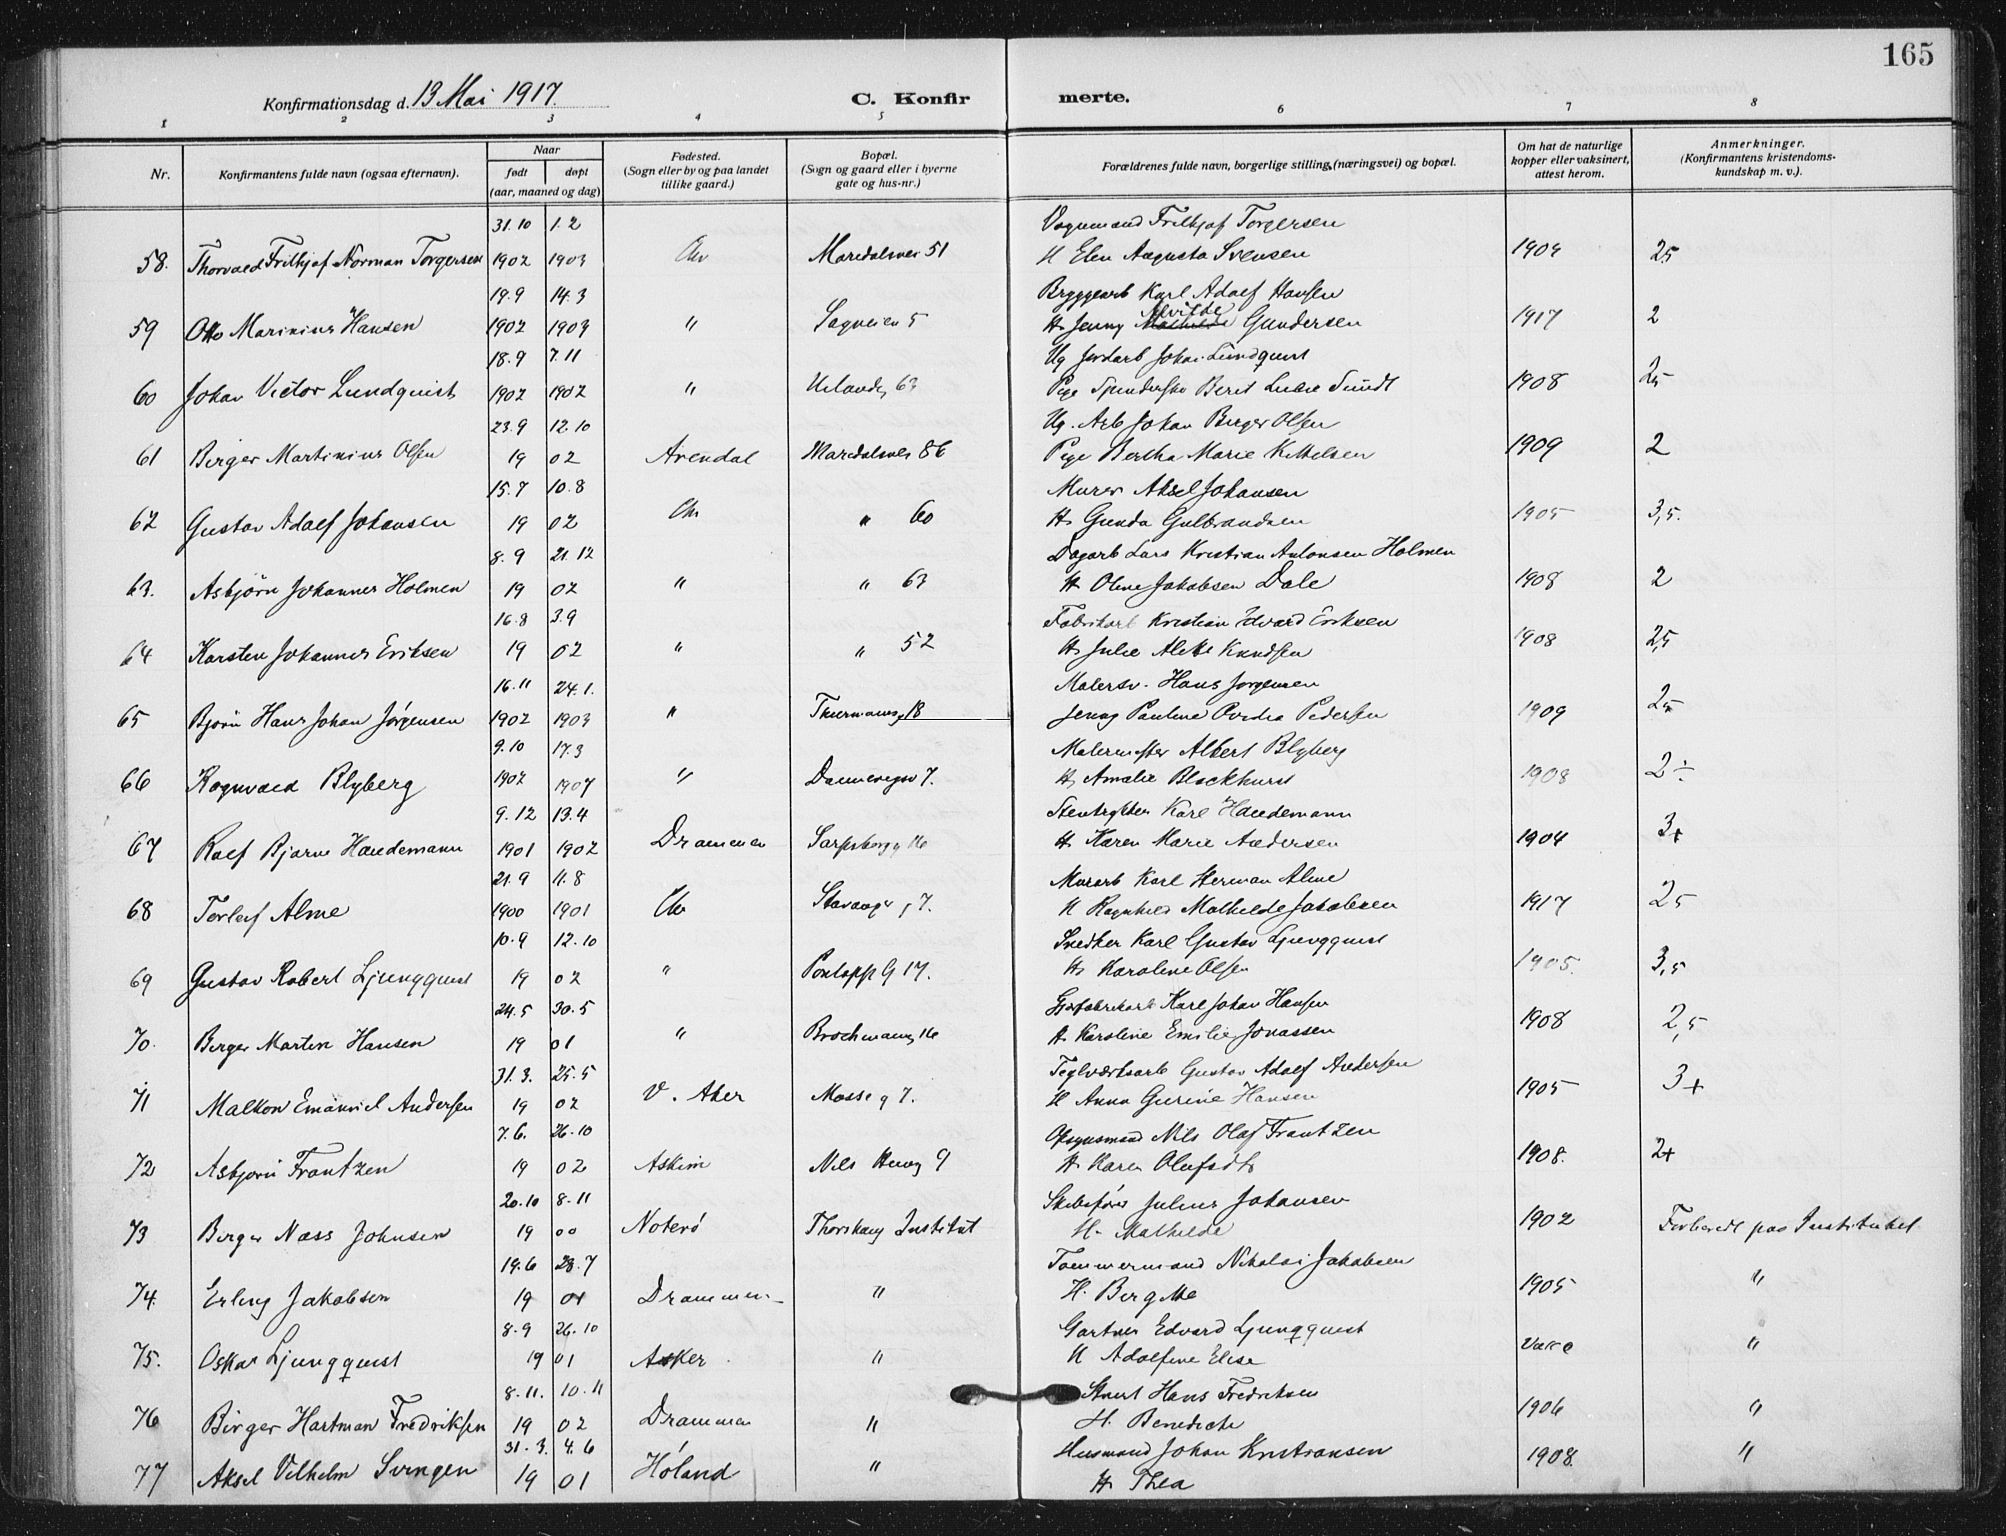 165
Konfirmationsdag d. 13 Mai 1917.
C. Konfirmerte.
1 2 3 4 5 6 7 8
Nr.
Konfirmantens fulde navn (ogsaa efternavn).
Naar
født døpt
(aar, maaned og dag)
Fødested.
(Sogn eller by og paa landet
tillike gaard.)
Bopæl.
(Sogn og gaard eller i byerne
gate og hus-nr.)
Forældrenes fulde navn, borgerlige stilling, (næringsvei) og bopæl.
Om hat de naturlige
kopper eller vaksinert,
attest herom.
Anmerkninger.
(Konfirmantens kristendoms-
kundskap m. v.).
31.10 1.2 Vognmand Frithjof Torgersen
58. Thorvald Frithjof Norman Torgersen 1902 1903 Chr Maridalsvei 51 H Elen Augusta Svensen 1904 25
19.9 14.3 Bryggearb Karl Adolf Hansen
59 Otto Marinius Hansen 1902 1903 " Sagveien 5 H. Jenny Alvilde Gundersen 1917 2
18.9 7.11 Ug Johan Lundquist
60 Johan Victor Lundquist 1902 1902 " Uelands 63 Pige Berit Sundt 1908 25
23.9 12.10 Ug. Arb Johan Birger Olsen
61 Birger Martinius Olsen 19 02 Arendal Maridalsvei 86 Pige Bertha Marie Kittelsen 1909 2
15.7 10.8 Murer Aksel Johansen
62 Gustav Adolf Johansen 19 02 Chr " 60 H. Gunda Gulbrandsen 1905 3,5.
8.9 21.12 Dagarb Lars Kristian Antonsen Holmen
63. Asbjørn Johannes Holmen 19 02 " " 63 H Oline Jakobsen Dale 1908 2
16.8 3.9 Fabrikarb Kristian Edvard Eriksen
64 Karsten Johannes Eriksen 19 02 " " 52 H. Julie Alette Knudsen 1908 2,5
16.11 24.1. Malersv. Hans Jørgensen
65 Bjørn Hans Johan Jørgensen 1902 1903 " Thurmansg 18 Jenny Pauline Pedersen 1909 25
9.10 17.3 Malermester Albert Blyberg
66 Rognvald Blyberg 1902 1907 " Dannevigsv 7. H. Amalie Blackhurst 1908 2÷
9.12 13.4 Karl Haudemann
67 Rolf Bjarne Haudemann 1901 1902 Drammen Sarpsborg g 16 H. Karen Marie Andersen 1904 3+
21.9 11.8 Murarb Karl Herman Alme
68 Torleif Alme 1900 1901 Chr Stavanger g 7. H Ragnhild Mathilde Jakobsen 1917 25
10.9 12.10 Snedker Karl Gustav Ljungquist
69 Gustav Robert Ljungquist 19 02 " Pontoppi G 17. H. Karoline Olsen 1905. 3,5
24.5 30.5 Karl Johan Hansen
70. Birger Martin Hansen 19 01 " Brochmansg 16 H. Karoline Emilie Jonassen 1908 2,5
31.3. 25.5 Teglværksarb Gustav Adolf Andersen
71 Malkon Emanuel Andersen 19 02 V. Aker Mosse g 7. H Anna Gurine Hansen 1905 3+
7.6. 26.10 Opsynsmand Nils Olaf Frantzen
72 Asbjørn Frantzen 19 02 Askim Nils Huusg 9 H. Karen Olufsdtr 1908. 2+
20.10 8.11 Skibsfører Julius Johansen
73 Birger Næss Johnsen 19 00 Nøterø Thorshaug Institut H. Mathilde 1902 Forberedt paa Institutet
19.6 28.7 Tømmermand Nikolai Jakobsen
74. Erling Jakobsen 19 01 Drammen " H. Bergitte 1905 "
8.9 26.10 Gartner Edvard Ljungquist
75. Oskar Ljungquist 19 01 Asker. " H Adolfine Elise "
8.11. 10.11 Hans Fredriksen
76 Birger Hartman Fredriksen 19 02 Drammen " H. Benedicte 1906 "
31.3. 4.6 Husmand Johan Kristiansen
77 Aksel Vilhelm Svingen 19 01 Høland " H. Thea 1908. "